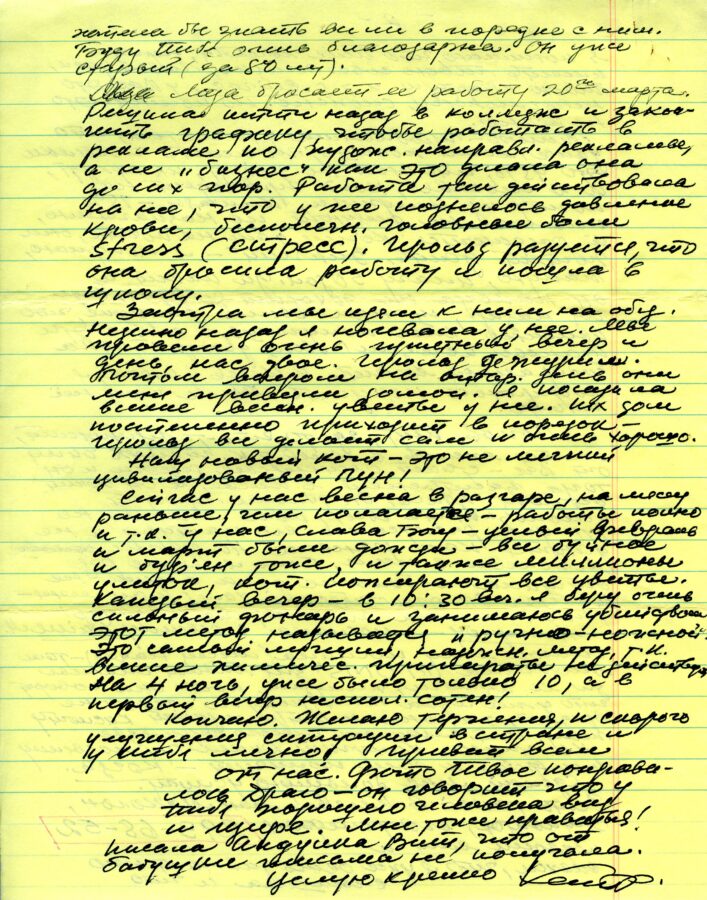 хотела бы знать все ли в порядке с ним.
Буду тебе очень благодарна. Он уже
старый (за 80 лет).
Лиза бросает работу 20го марта.
Решила идти назад в колледж и закон-
чить графику, чтобы работать в
рекламе по худож. направл. рекламы,
а не "бизнес" как это делала она
до сих пор. Работа так действовала
на нее, что у нее поднялось давление
крови, бесконечн. головные боли
stress (стресс). Герольд разуется, что
она бросила работу и пошла в
школу.
Завтра мы идем к ним на обед.
Недавно назад я ночевала у нее. Мы
провели очень вечер и
день, нас двое. Герольд дежурил.
Потом вечером на день они
меня привезли домой. Я посадила
всякие весен. цветы у нее. Их дом
постепенно приходит в порядок –
Герольд все делает сам и очень хорошо.
Наш новый кот – это не
цивилизованный Пун!
Сейчас у нас весна в разгаре, на месяц
раньше, чем полагается – работы полно
и т.к. у нас, слава Богу – целый февраль
и март были дожди – все буйное
и бурьян тоже, и также миллионы
улиток, кот. пожирают все цветы.
Каждый вечер – в 10:30 веч. я беру очень
сильный фонарь и занимаюсь убийством
этот метод называется "ручно-ножной".
Это самый лучший, метод, т.к.
всякие химичес. препараты не действуют
На 4 ночь, уже было только 10, а в
первый вечер несколь. сотен!
Кончаю. Желаю терпения, и скорого
улучшения ситуации в стране и
у тебя лично. Привет всем
от нас. Фото твое понрави-
лось Драго – он говорит что у
тебя хорошего человека вид
и Мне тоже нравится!
писала Андушка Вит, что от
бабушки письма не получала.
Целую крепко